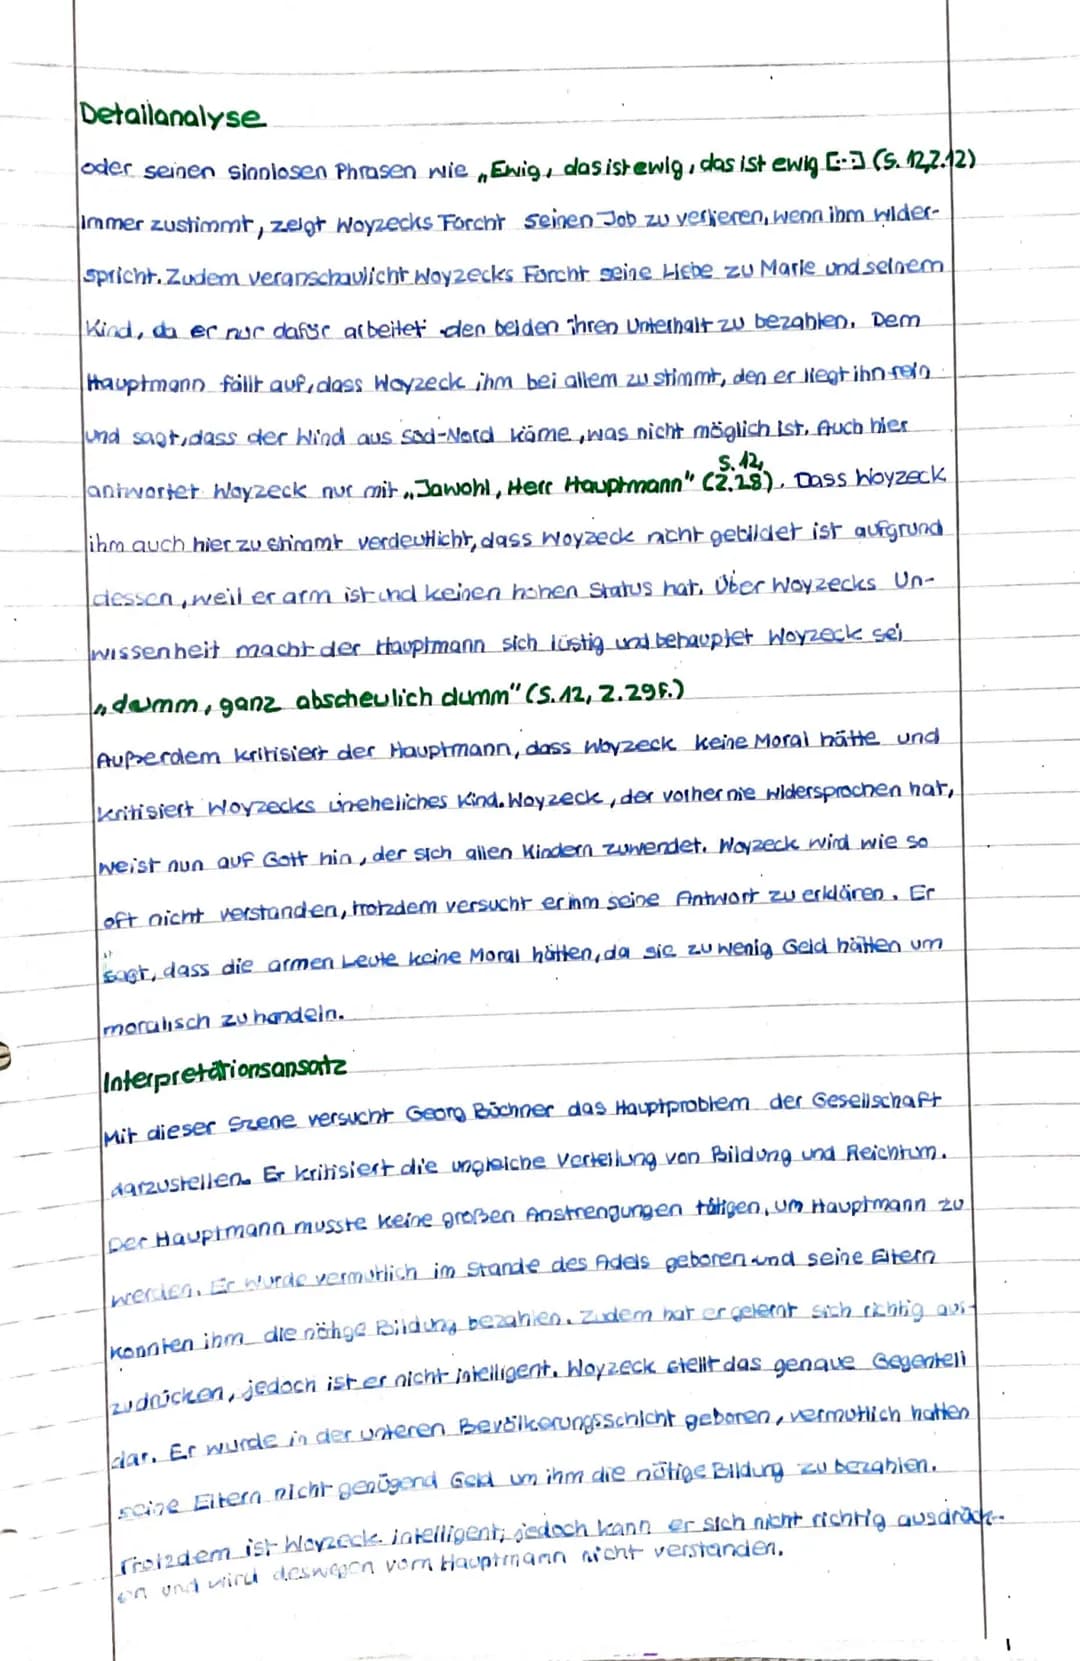 Detailanalyse
oder seinen sinnlosen Phrasen wie „Ewig, das ist ewig, das ist ewig [...] (S. 12, Z. 12)
immer zustimmt, zeigt Woyzecks Forcht seinen Job zu verlieren, wenn ihm wider-
spricht. Zudem veranschaulicht Woyzecks Forcht seine Liebe zu Marie und seinem
Kind, da er nur dafür arbeitet den beiden ihren Unterhalt zu bezahlen. Dem
Hauptmann fällt auf, dass Woyzeck ihm bei allem zu stimmt, den er legt ihn rein
und sagt, dass der Wind aus Süd-Nord käme, was nicht möglich ist. Auch hier
antwortet Woyzeck nur mit „Jawohl, Herr Hauptmann" (S. 12, Z. 28). Dass Woyzeck
ihm auch hier zu stimmt verdeutlicht, dass Woyzeck nicht gebildet ist aufgrund
dessen, weil er arm ist und keinen hohen Status hat. Über Woyzecks Un-
wissenheit macht der Hauptmann sich lustig und behauptet Woyzeck sei
„dumm, ganz abscheulich dumm" (S. 12, Z. 29f.)
Außerdem kritisiert der Hauptmann, dass Woyzeck keine Moral hätte und
kritisiert Woyzecks uneheliches Kind. Woyzeck, der vorher nie widersprochen hat,
weist nun auf Gott hin, der sich allen Kindern zuwendet. Woyzeck wird wie so
oft nicht verstanden, trotzdem versucht er ihm seine Antwort zu erklären. Er
sagt, dass die armen Leute keine Moral hätten, da sie zu wenig Geld hätten um
moralisch zu handeln.
Interpretationsansatz
Mit dieser Szene versucht Georg Büchner das Hauptproblem der Gesellschaft
darzustellen. Er kritisiert die ungleiche Verteilung von Bildung und Reichtum.
Der Hauptmann musste keine großen Anstrengungen tätigen, um Hauptmann zu
werden. Er wurde vermutlich im Stande des Adels geboren und seine Eltern
konnten ihm die nötige Bildung bezahlen. Zudem hat er gelernt sich richtig aus-
zudrücken, jedoch ist er nicht intelligent. Woyzeck stellt das genaue Gegenteil
dar. Er wurde in der unteren Bevölkerungsschicht geboren, vermutlich hatten
seine Eltern nicht genügend Geld um ihm die nötige Bildung zu bezahlen.
Trotzdem ist Woyzeck intelligent, jedoch kann er sich nicht richtig ausdrück-
en und wird deswegen vom Hauptmann nicht verstanden.